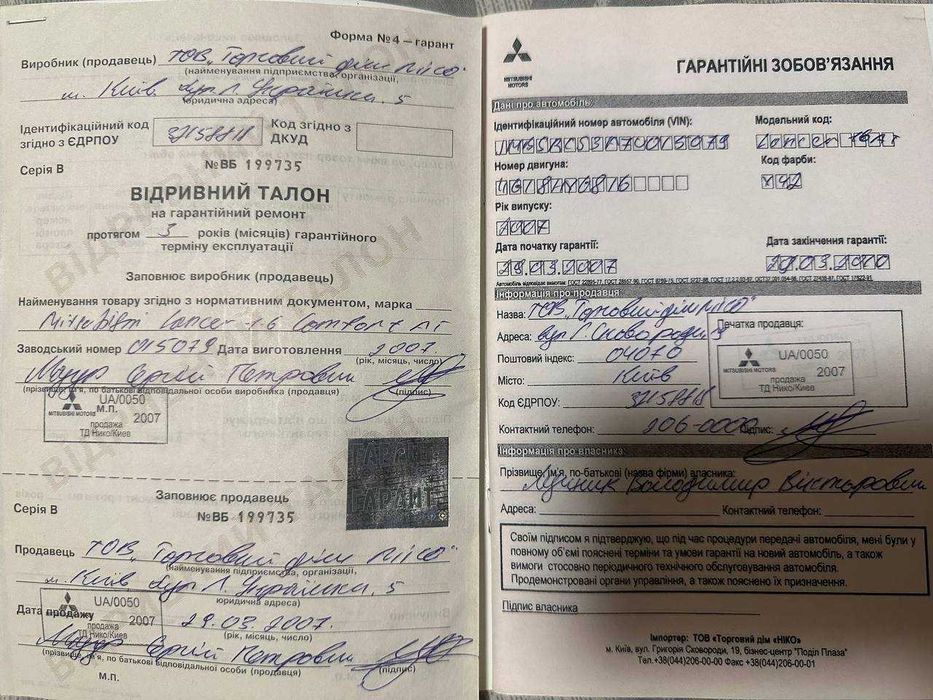 Форма №4 – гарант
Виробник (продавець) ТОВ „Торговий дім Ніко"
(найменування підприємства, організації,
м. Київ вул. Л. Українки, 5
юридична адреса)
Ідентифікаційний код згідно з ЄДРПОУ
Код згідно з ДКУД
Серія В
№ВБ 199735
ВІДРИВНИЙ ТАЛОН
на гарантійний ремонт
протягом 3 років (місяців) гарантійного
терміну експлуатації
Заповнює виробник (продавець)
Найменування товару згідно з нормативним документом, марка
Mitsubishi Lancer 1.6 Comfort AT
Заводський номер 015079 Дата виготовлення 2007
(рік, місяць, число)
Мазур Сергій Петрович
(прізвище, ім'я, по батькові відповідальної особи виробника (продавця) (підпис)
М.П.
MITSUBISHI MOTORS
UA/0050
2007
продажа
ТД Нико/Киев
ГАРАНТ
Заповнює продавець
Серія В
№ВБ 199735
Продавець ТОВ „Торговий дім Ніко"
(найменування підприємства, організації,
м. Київ вул. Л. Українки, 5
юридична адреса)
Дата продажу 29.03.2007.
(рік, місяць, число)
UA/0050
2007
продажа
ТД Нико/Киев
Мазур Сергій Петрович
(прізвище, ім'я, по батькові відповідальної особи продавця) (підпис)
М.П.
MITSUBISHI MOTORS
ГАРАНТІЙНІ ЗОБОВ'ЯЗАННЯ
Дані про автомобіль:
Ідентифікаційний номер автомобіля (VIN):
Модельний код:
Номер двигуна:
Код фарби:
Рік випуску:
2007
Дата початку гарантії:
Дата закінчення гарантії:
29.03.2007
29.03.2010
Інформація про продавця:
Назва: ТОВ „Торговий дім Ніко"
Адреса: вул. Г. Сковороди, 19
Поштовий індекс: 04070
Місто: Київ
Код ЄДРПОУ:
Контактний телефон: 206-0000 Підпис:
Печатка продавця:
MITSUBISHI MOTORS
UA/0050
2007
продажа
ТД Нико/Киев
Інформація про власника:
Прізвище, ім'я, по-батькові (назва фірми) власника:
Володимир Вікторович
Адреса: Контактний телефон:
Своїм підписом я підтверджую, що під час процедури передачі автомобіля, мені були у
повному об'ємі пояснені терміни та умови гарантії на новий автомобіль, а також
вимоги стосовно періодичного технічного обслуговування автомобіля.
Продемонстровані органи управління, а також пояснено їх призначення.
Підпис власника
Імпортер: ТОВ «Торговий дім «НІКО»
м. Київ, вул. Григорія Сковороди, 19, бізнес-центр "Поділ Плаза"
Тел.+38(044)206-00-00 Факс +38(044)206-00-01